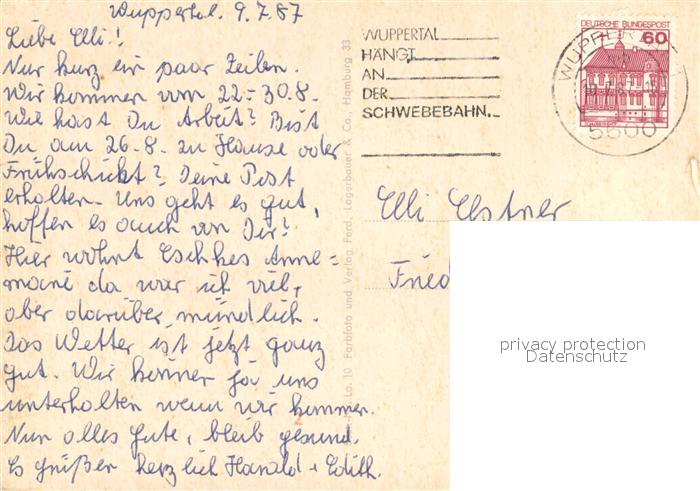 Wuppertal. 9.7.87
Liebe Elli!
Nur kurz ein paar Zeilen.
Wir kommen vom 22-30.8.
Wie hast Du Arbeit? Bist
Du am 26.8. zu Hause oder
Frühschicht? Deine Post
erhalten. Uns geht es gut,
hoffen es auch von Dir!
Hier wohnt Anne=
marie da war ich viel,
aber darüber mündlich.
Das Wetter ist jetzt ganz
gut. Wir können ja uns
unterhalten wenn wir kommen.
Nun alles Gute, bleib gesund.
Es grüßen herzlich Harald + Edith.
Lo. 10 Farbfoto und Verlag Ferd. Lagerbauer & Co., Hamburg 33
WUPPERTAL
HÄNGT
AN
DER
SCHWEBEBAHN.
DEUTSCHE BUNDESPOST
60
WUPPERTAL
5600
Elli Elstner
Fried
privacy protection
Datenschutz